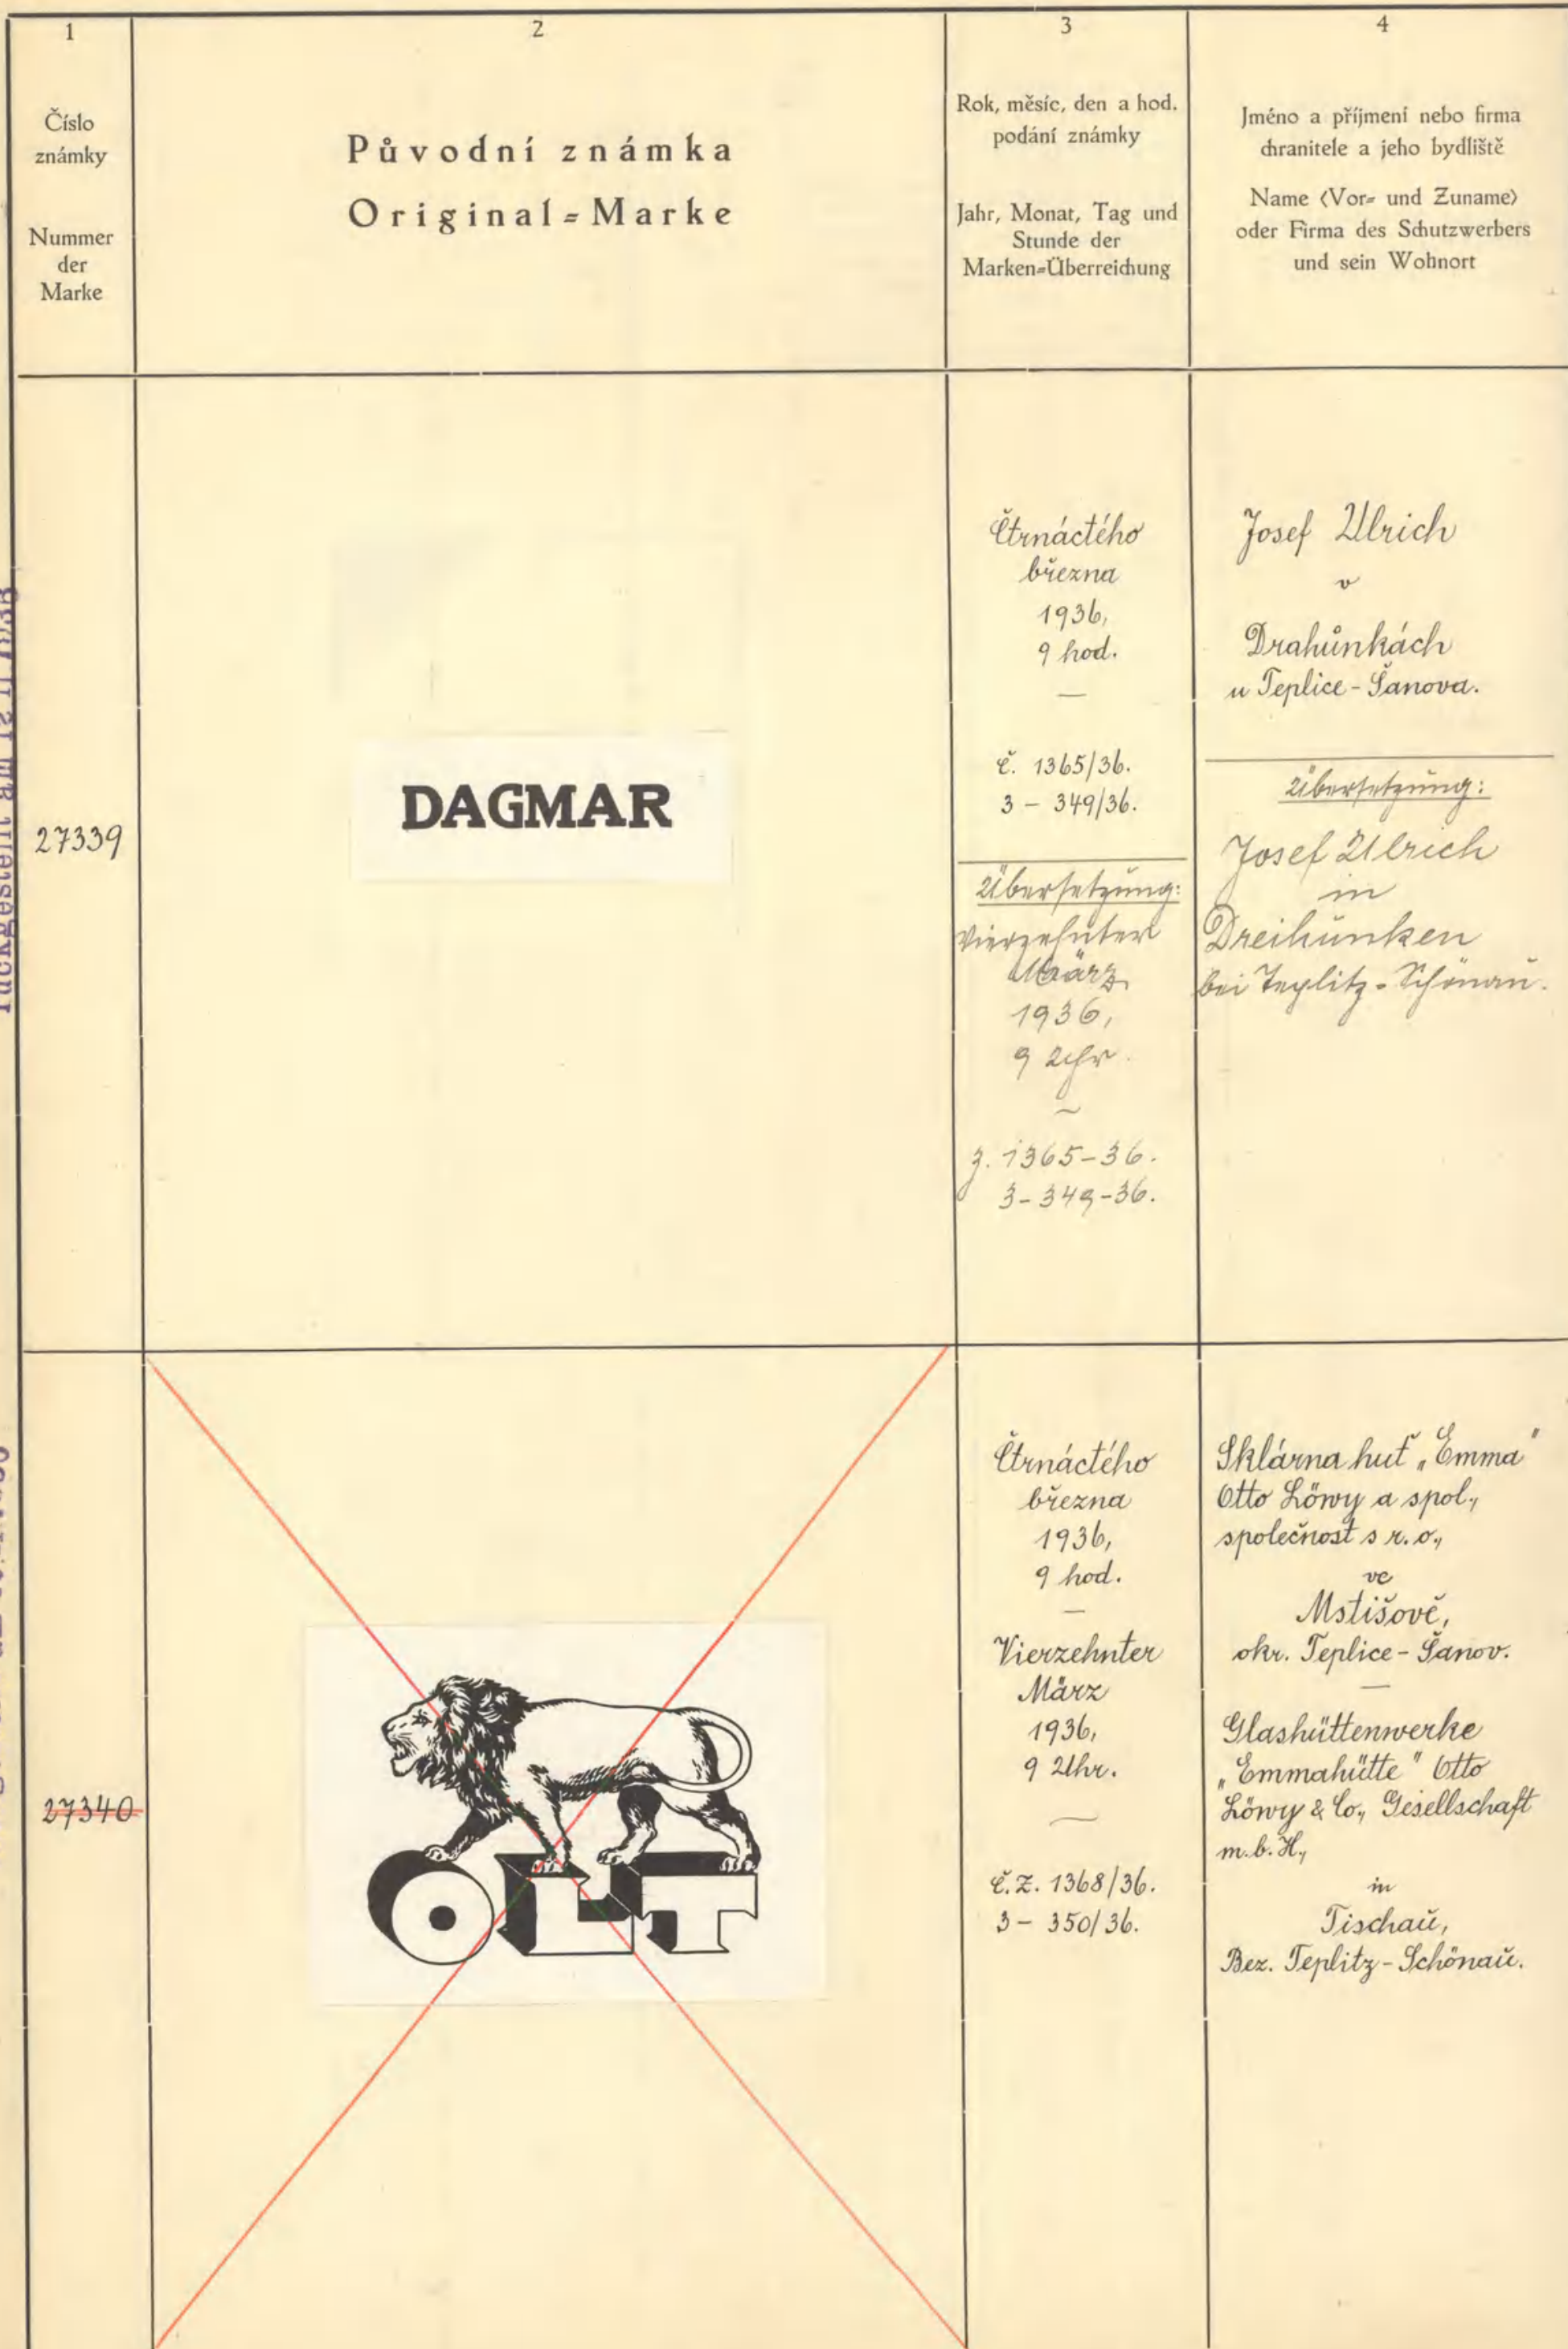 1
Číslo
známky
Nummer
der
Marke
2
Původní známka
Original=Marke
3
Rok, měsíc, den a hod.
podání známky
Jahr, Monat, Tag und
Stunde der
Marken=Überreichung
4
Jméno a příjmení nebo firma
chranitele a jeho bydliště
Name (Vor= und Zuname)
oder Firma des Schutzwerbers
und sein Wohnort
27339
DAGMAR
Čtrnáctého
března
1936,
9 hod.
—
č. 1365/36.
3 – 349/36.
Übersetzung:
Vierzehnter
März
1936,
9 Uhr.
~
z. 1365-36.
3-349-36.
Josef Ulrich
v
Drahůnkách
u Teplice-Šanova.
Übersetzung:
Josef Ulrich
in
Dreihunken
bei Teplitz-Schönau.
27340
OLT
Čtrnáctého
března
1936,
9 hod.
—
Vierzehnter
März
1936,
9 Uhr.
—
č.Z. 1368/36.
3 – 350/36.
Sklárna huť „Emma"
Otto Löwy a spol.,
společnost s r.o.,
ve
Mstišově,
okr. Teplice-Šanov.
—
Glashüttenwerke
„Emmahütte" Otto
Löwy & Co., Gesellschaft
m.b.H.,
in
Tischau,
Bez. Teplitz-Schönau.